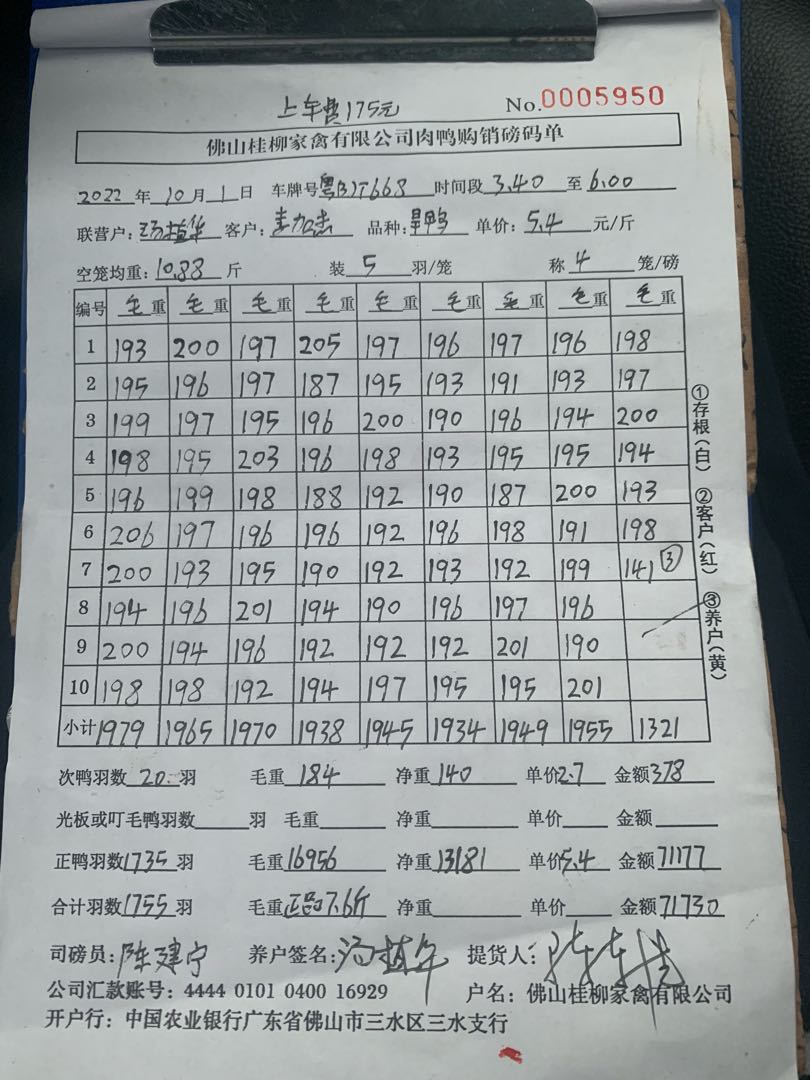 上车费175元
No.0005950
佛山桂柳家禽有限公司肉鸭购销磅码单
2022年10月1日 车牌号 时间段3.40至6.00
联营户: 客户: 品种:旱鸭 单价:5.4元/斤
空笼均重:10.88斤 装5羽/笼 称4笼/磅
编号 毛重 毛重 毛重 毛重 毛重 毛重 毛重 毛重 毛重
1 193 200 197 205 197 196 197 196 198
2 195 196 197 187 195 193 191 193 197
3 199 197 195 196 200 190 196 194 200
4 198 195 203 196 198 193 195 195 194
5 196 199 198 188 192 190 187 200 193
6 206 197 196 196 192 196 198 191 198
7 200 193 195 190 192 193 192 199 141③
8 194 196 201 194 190 196 197 196
9 200 194 196 192 192 192 201 190
10 198 198 192 194 197 195 195 201
小计 1979 1965 1970 1938 1945 1934 1949 1955 1321
①存根(白) ②客户(红) ③养户(黄)
次鸭羽数20羽 毛重184 净重140 单价2.7 金额378
光板或叮毛鸭羽数 羽 毛重 净重 单价 金额
正鸭羽数1735羽 毛重16956 净重13181 单价5.4 金额71177
合计羽数1755羽 毛重 7.6斤 净重 单价 金额71730
司磅员:陈建宁 养户签名: 提货人:
公司汇款账号:4444 0101 0400 16929 户名:佛山桂柳家禽有限公司
开户行:中国农业银行广东省佛山市三水区三水支行